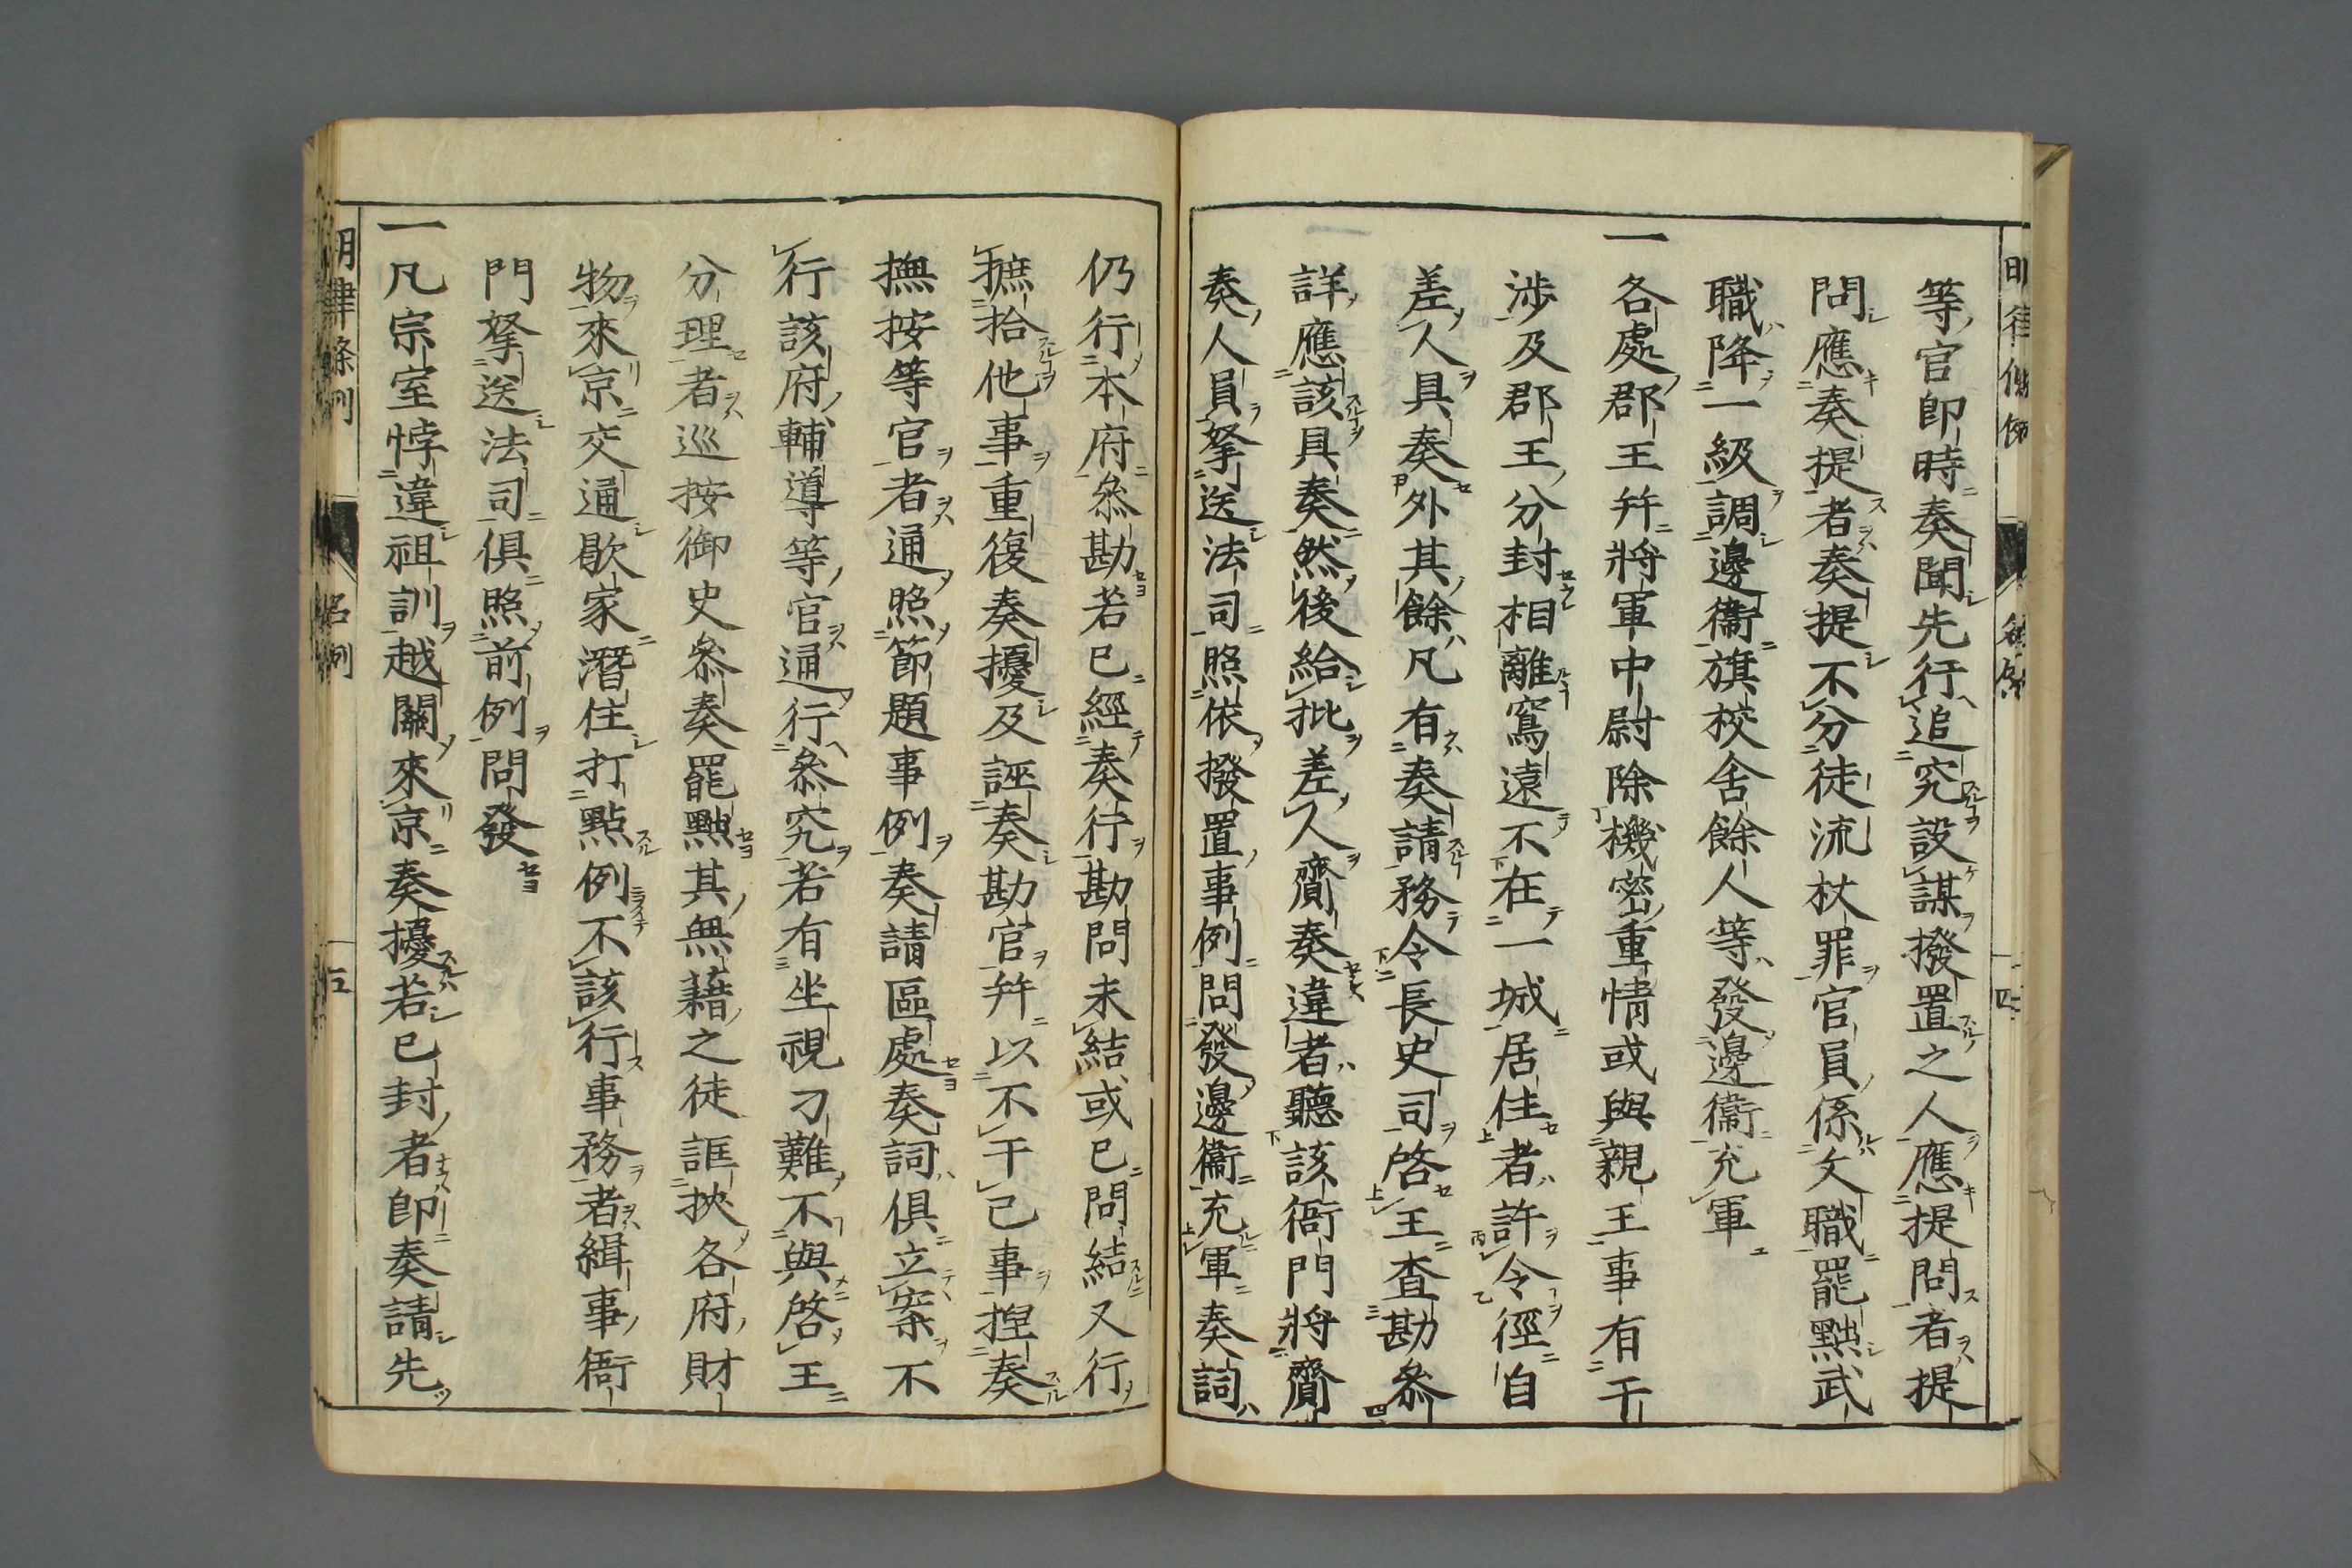 等官即時奏聞先行追究設謀撥置之人應提問者提
問應奏提者奏提不分徒流杖罪官員係文職罷黜武
職降一級調邊衞旗校舍餘人等發邊衞充軍
一各處郡王幷將軍中尉除機密重情或與親王事有干
涉及郡王分封相離窵遠不在一城居住者許令徑自
差人具奏外其餘凡有奏請務令長史司啓王查勘叅
詳應該具奏然後給批差人齎奏違者聽該衙門將齎
奏人員拏送法司照依撥置事例問發邊衞充軍奏詞
仍行本府叅勘若已經奏行勘問未結或已問結又行
摭拾他事重復奏擾及誣奏勘官幷以不干己事捏奏
撫按等官者通照節題事例奏請區處奏詞俱立案不
行該府輔導等官通行叅究若有坐視刁難不與啓王
分理者巡按御史叅奏罷黜其無藉之徒誆挾各府財
物來京交通歇家潛住打點例不該行事務者緝事衙
門拏送法司俱照前例問發
一凡宗室悖違祖訓越關來京奏擾若已封者即奏請先
明律條例 名例 五